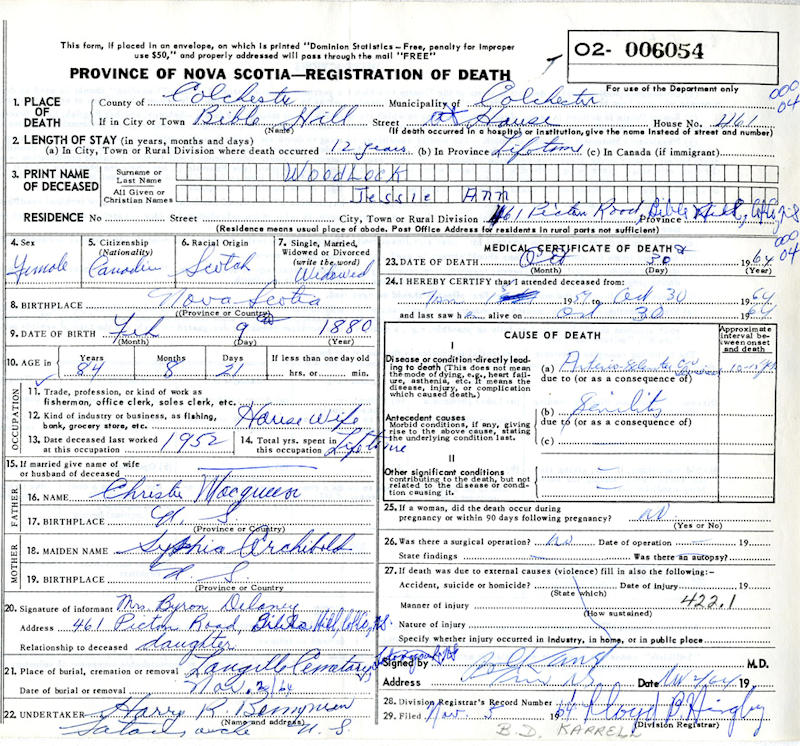 This form, if placed in an envelope, on which is printed "Dominion Statistics – Free, penalty for improper
use $50," and properly addressed will pass through the mail "FREE"
O2- 006054
PROVINCE OF NOVA SCOTIA—REGISTRATION OF DEATH
For use of the Department only
000
04
1. PLACE OF DEATH County of Colchester Municipality of Colchester
If in City or Town Bible Hill Street at House House No. 461
(Name) (If death occurred in a hospital or institution, give the name instead of street and number)
2. LENGTH OF STAY (in years, months and days)
(a) In City, Town or Rural Division where death occurred 12 years (b) In Province Lifetime (c) In Canada (if immigrant)
3. PRINT NAME OF DECEASED Surname or Last Name Woodlock
All Given or Christian Names Jessie Ann
RESIDENCE No Street City, Town or Rural Division 461 Pictou Road, Bible Hill, Province
(Residence means usual place of abode. Post Office Address for residents in rural parts not sufficient)
4. Sex Female
5. Citizenship (Nationality) Canadian
6. Racial Origin Scotch
7. Single, Married, Widowed or Divorced (write the word) Widowed
8. BIRTHPLACE Nova Scotia
(Province or Country)
9. DATE OF BIRTH Feb 9 1880
(Month) (Day) (Year)
10. AGE in Years 84 Months 8 Days 21 If less than one day old
hrs. or min.
OCCUPATION
11. Trade, profession, or kind of work as
fisherman, office clerk, sales clerk, etc.
12. Kind of industry or business, as fishing,
bank, grocery store, etc. House Wife
13. Date deceased last worked at this occupation 1952
14. Total yrs. spent in this occupation Lifetime
15. If married give name of wife
or husband of deceased
FATHER
16. NAME Christie Macqueen
17. BIRTHPLACE N. S.
(Province or Country)
MOTHER
18. MAIDEN NAME Sophia Archibald
19. BIRTHPLACE N. S.
(Province or Country)
20. Signature of informant Mrs. Byron Delaney
Address 461 Pictou Road, Bible Hill, Colc, NS
Relationship to deceased daughter
21. Place of burial, cremation or removal Cemetery
Date of burial or removal Nov. 2/64
22. UNDERTAKER Harry R.
(Name and address)
N. S.
MEDICAL CERTIFICATE OF DEATH
000
04
23. DATE OF DEATH Oct 30 1964
(Month) (Day) (Year)
24. I HEREBY CERTIFY that I attended deceased from:
1959 to Oct 30 1964
and last saw h alive on Oct 30 1964
CAUSE OF DEATH
Approximate interval between onset and death
I
Disease or condition directly leading to death (This does not mean
the mode of dying, e.g., heart failure, asthenia, etc. It means the
disease, injury, or complication which caused death.)
(a) 10-12 yrs
due to (or as a consequence of)
Antecedent causes
Morbid conditions, if any, giving rise to the above cause, stating
the underlying condition last.
(b) Senility
due to (or as a consequence of)
(c)
II
Other significant conditions
contributing to the death, but not related to the disease or condition causing it.
25. If a woman, did the death occur during
pregnancy or within 90 days following pregnancy? no
(Yes or No)
26. Was there a surgical operation? no Date of operation 19
State findings Was there an autopsy?
27. If death was due to external causes (violence) fill in also the following:–
Accident, suicide or homicide? Date of injury 19
(State which)
Manner of injury 422.1
(How sustained)
Nature of injury
Specify whether injury occurred in industry, in home, or in public place
Signed by M.D.
Address Date 19
28. Division Registrar's Record Number
29. Filed Nov. 5 1964 Lloyd B.
(Division Registrar)
B.D. KARRELL